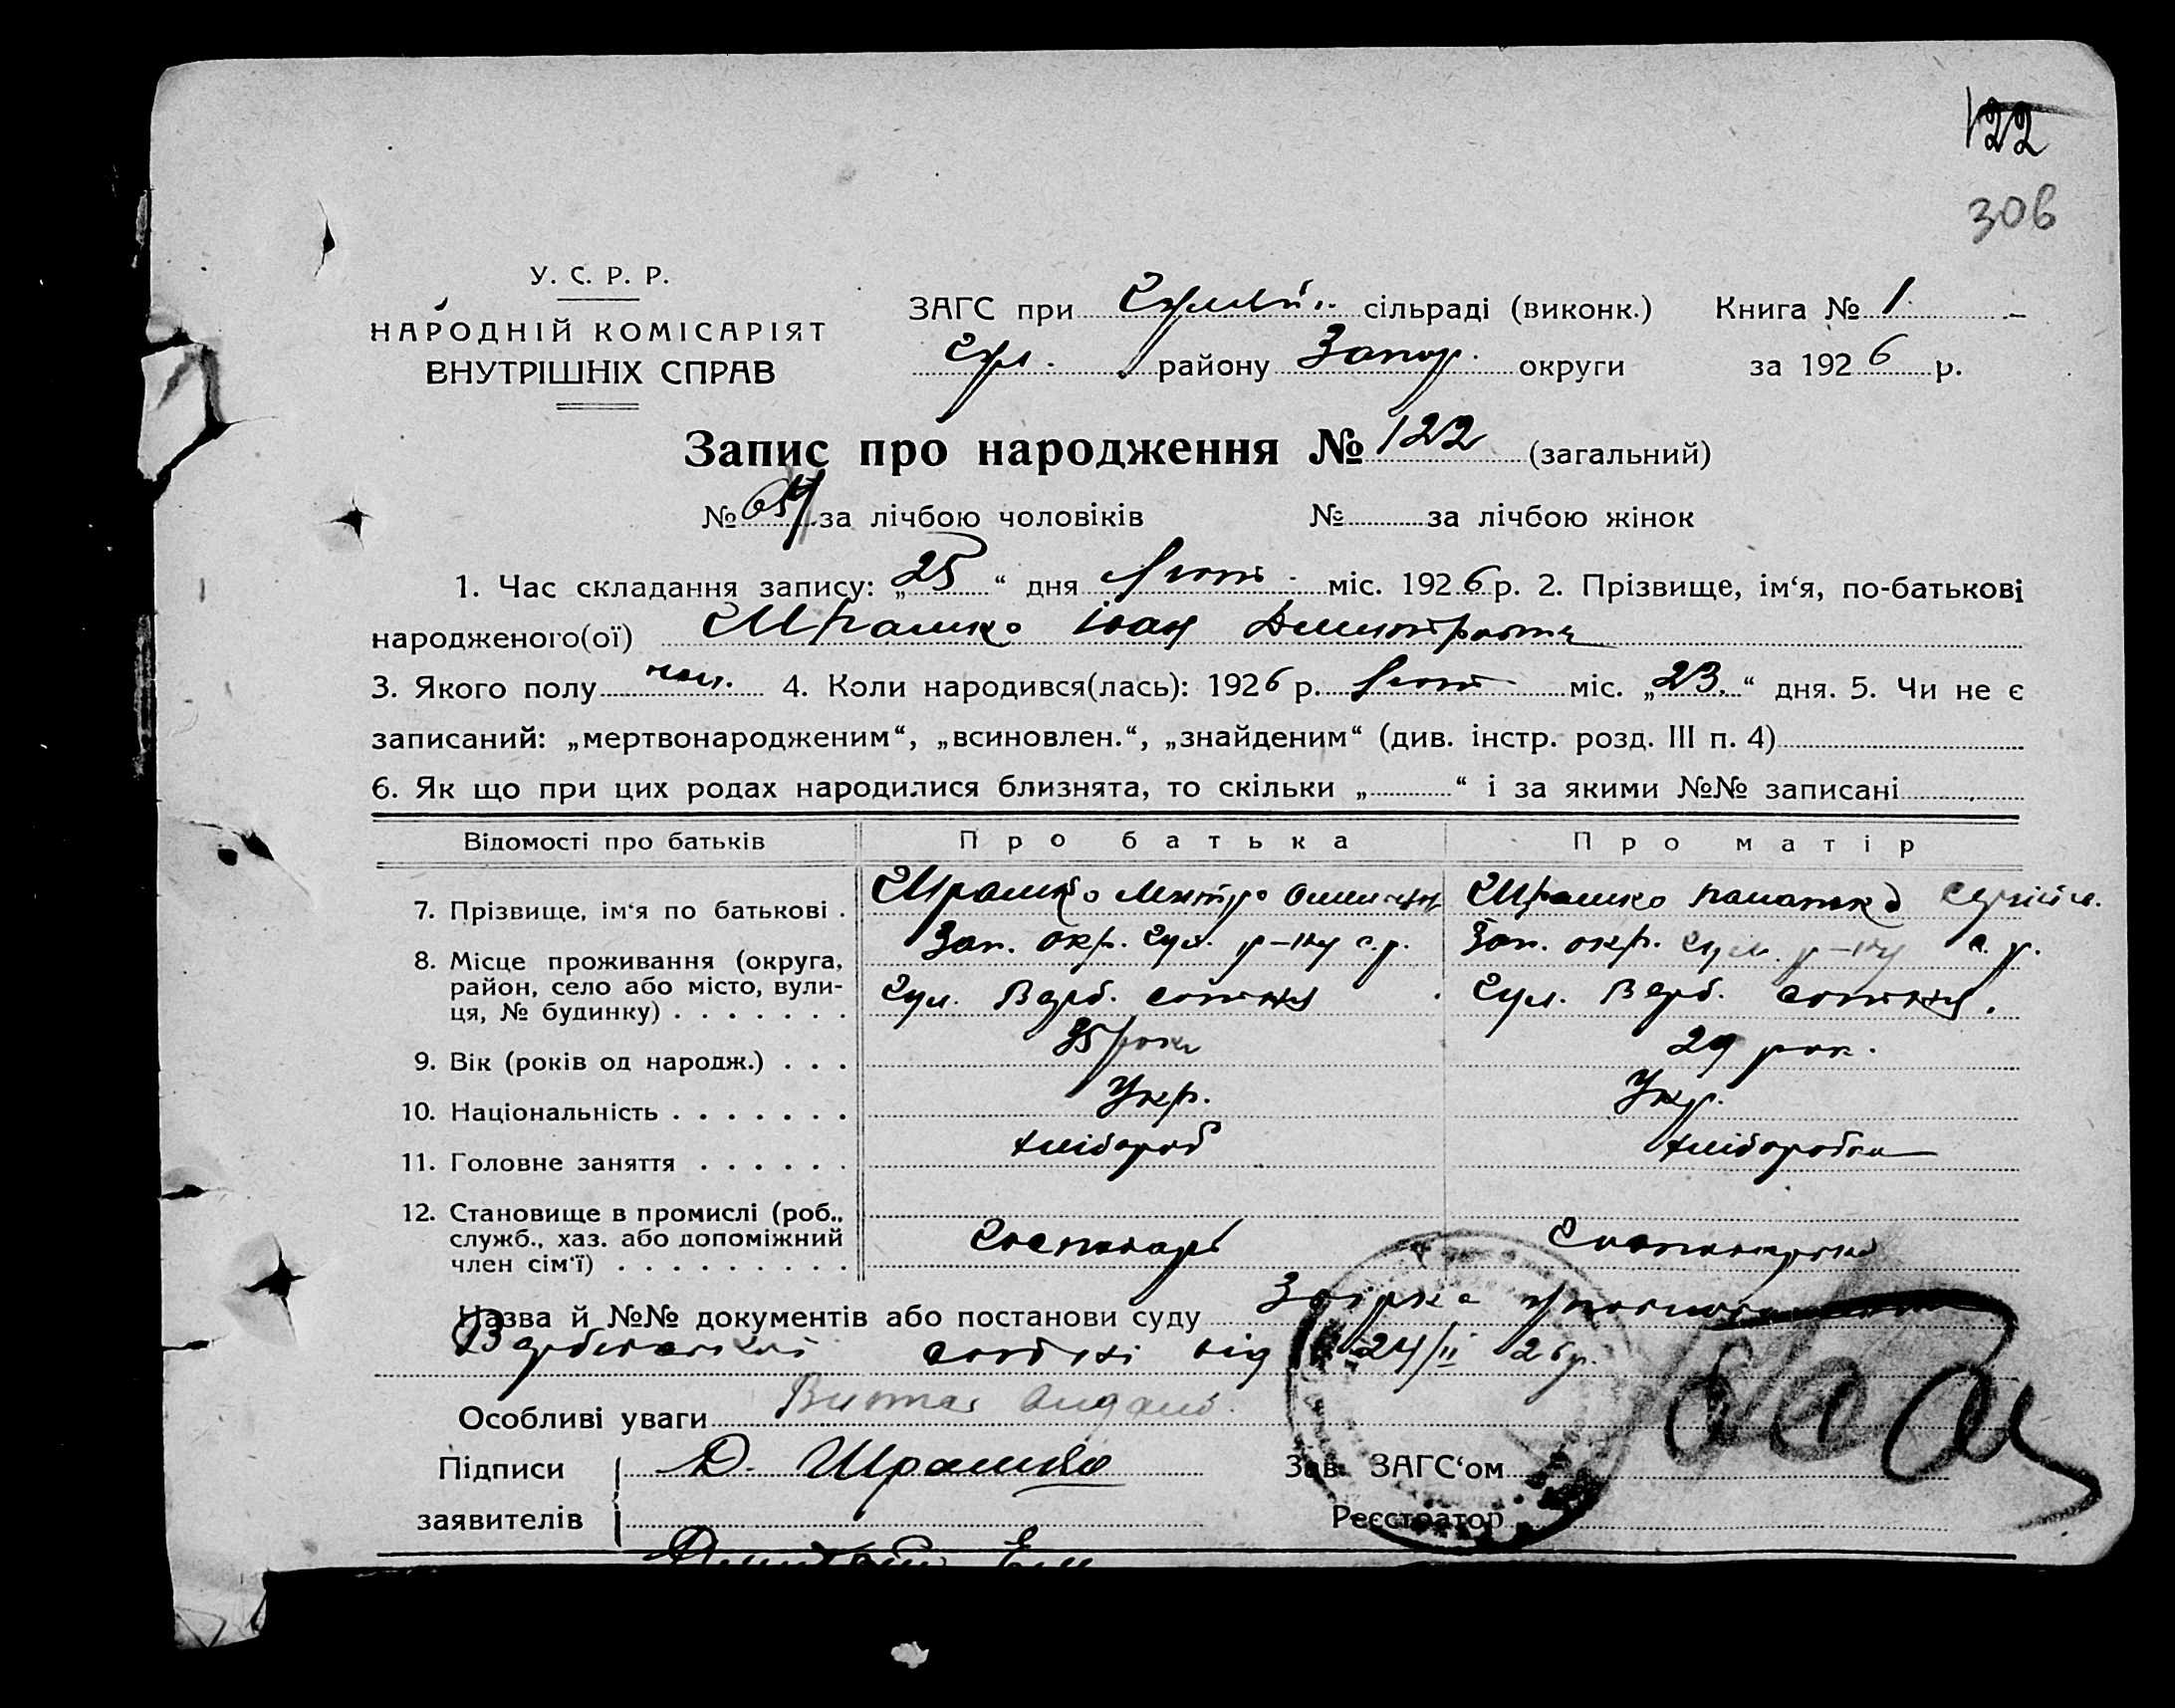 122
306
У. С. Р. Р.
НАРОДНІЙ КОМІСАРІЯТ
ВНУТРІШНІХ СПРАВ
ЗАГС при сільраді (виконк.) Книга № 1
району Запор. округи за 1926 р.
Запис про народження № 122 (загальний)
№ 64 за лічбою чоловіків № за лічбою жінок
1. Час складання запису: „25“ дня Лют. міс. 1926 р. 2. Прізвище, ім‘я, по-батькові
народженого(ої) Шрамко Іван
3. Якого полу чол. 4. Коли народився(лась): 1926 р. Лют. міс. „23.“ дня. 5. Чи не є
записаний: „мертвонародженим“, „всиновлен.“, „знайденим“ (див. інстр. розд. III п. 4)
6. Як що при цих родах народилися близнята, то скільки „ “ і за якими №№ записані
Відомості про батьків Про батька Про матір
7. Прізвище, ім‘я по батькові . Шрамко Митро Шрамко
8. Місце проживання (округа, Зап. окр. р-ну с. р. Зап. окр. р-ну с. р.
район, село або місто, вули- Верб. сотня Верб. сотня.
ця, № будинку)
9. Вік (років од народж.) 35 рок. 29 рок.
10. Національність Укр. Укр.
11. Головне заняття хлібороб хліборобка
12. Становище в промислі (роб.,
служб., хаз. або допоміжний Господарь
член сім‘ї)
Назва й №№ документів або постанови суду
сотні від 24/II 26 р.
Особливі уваги Витяг видано.
Підписи Д. Шрамко Зав. ЗАГС‘ом
заявителів Реєстратор